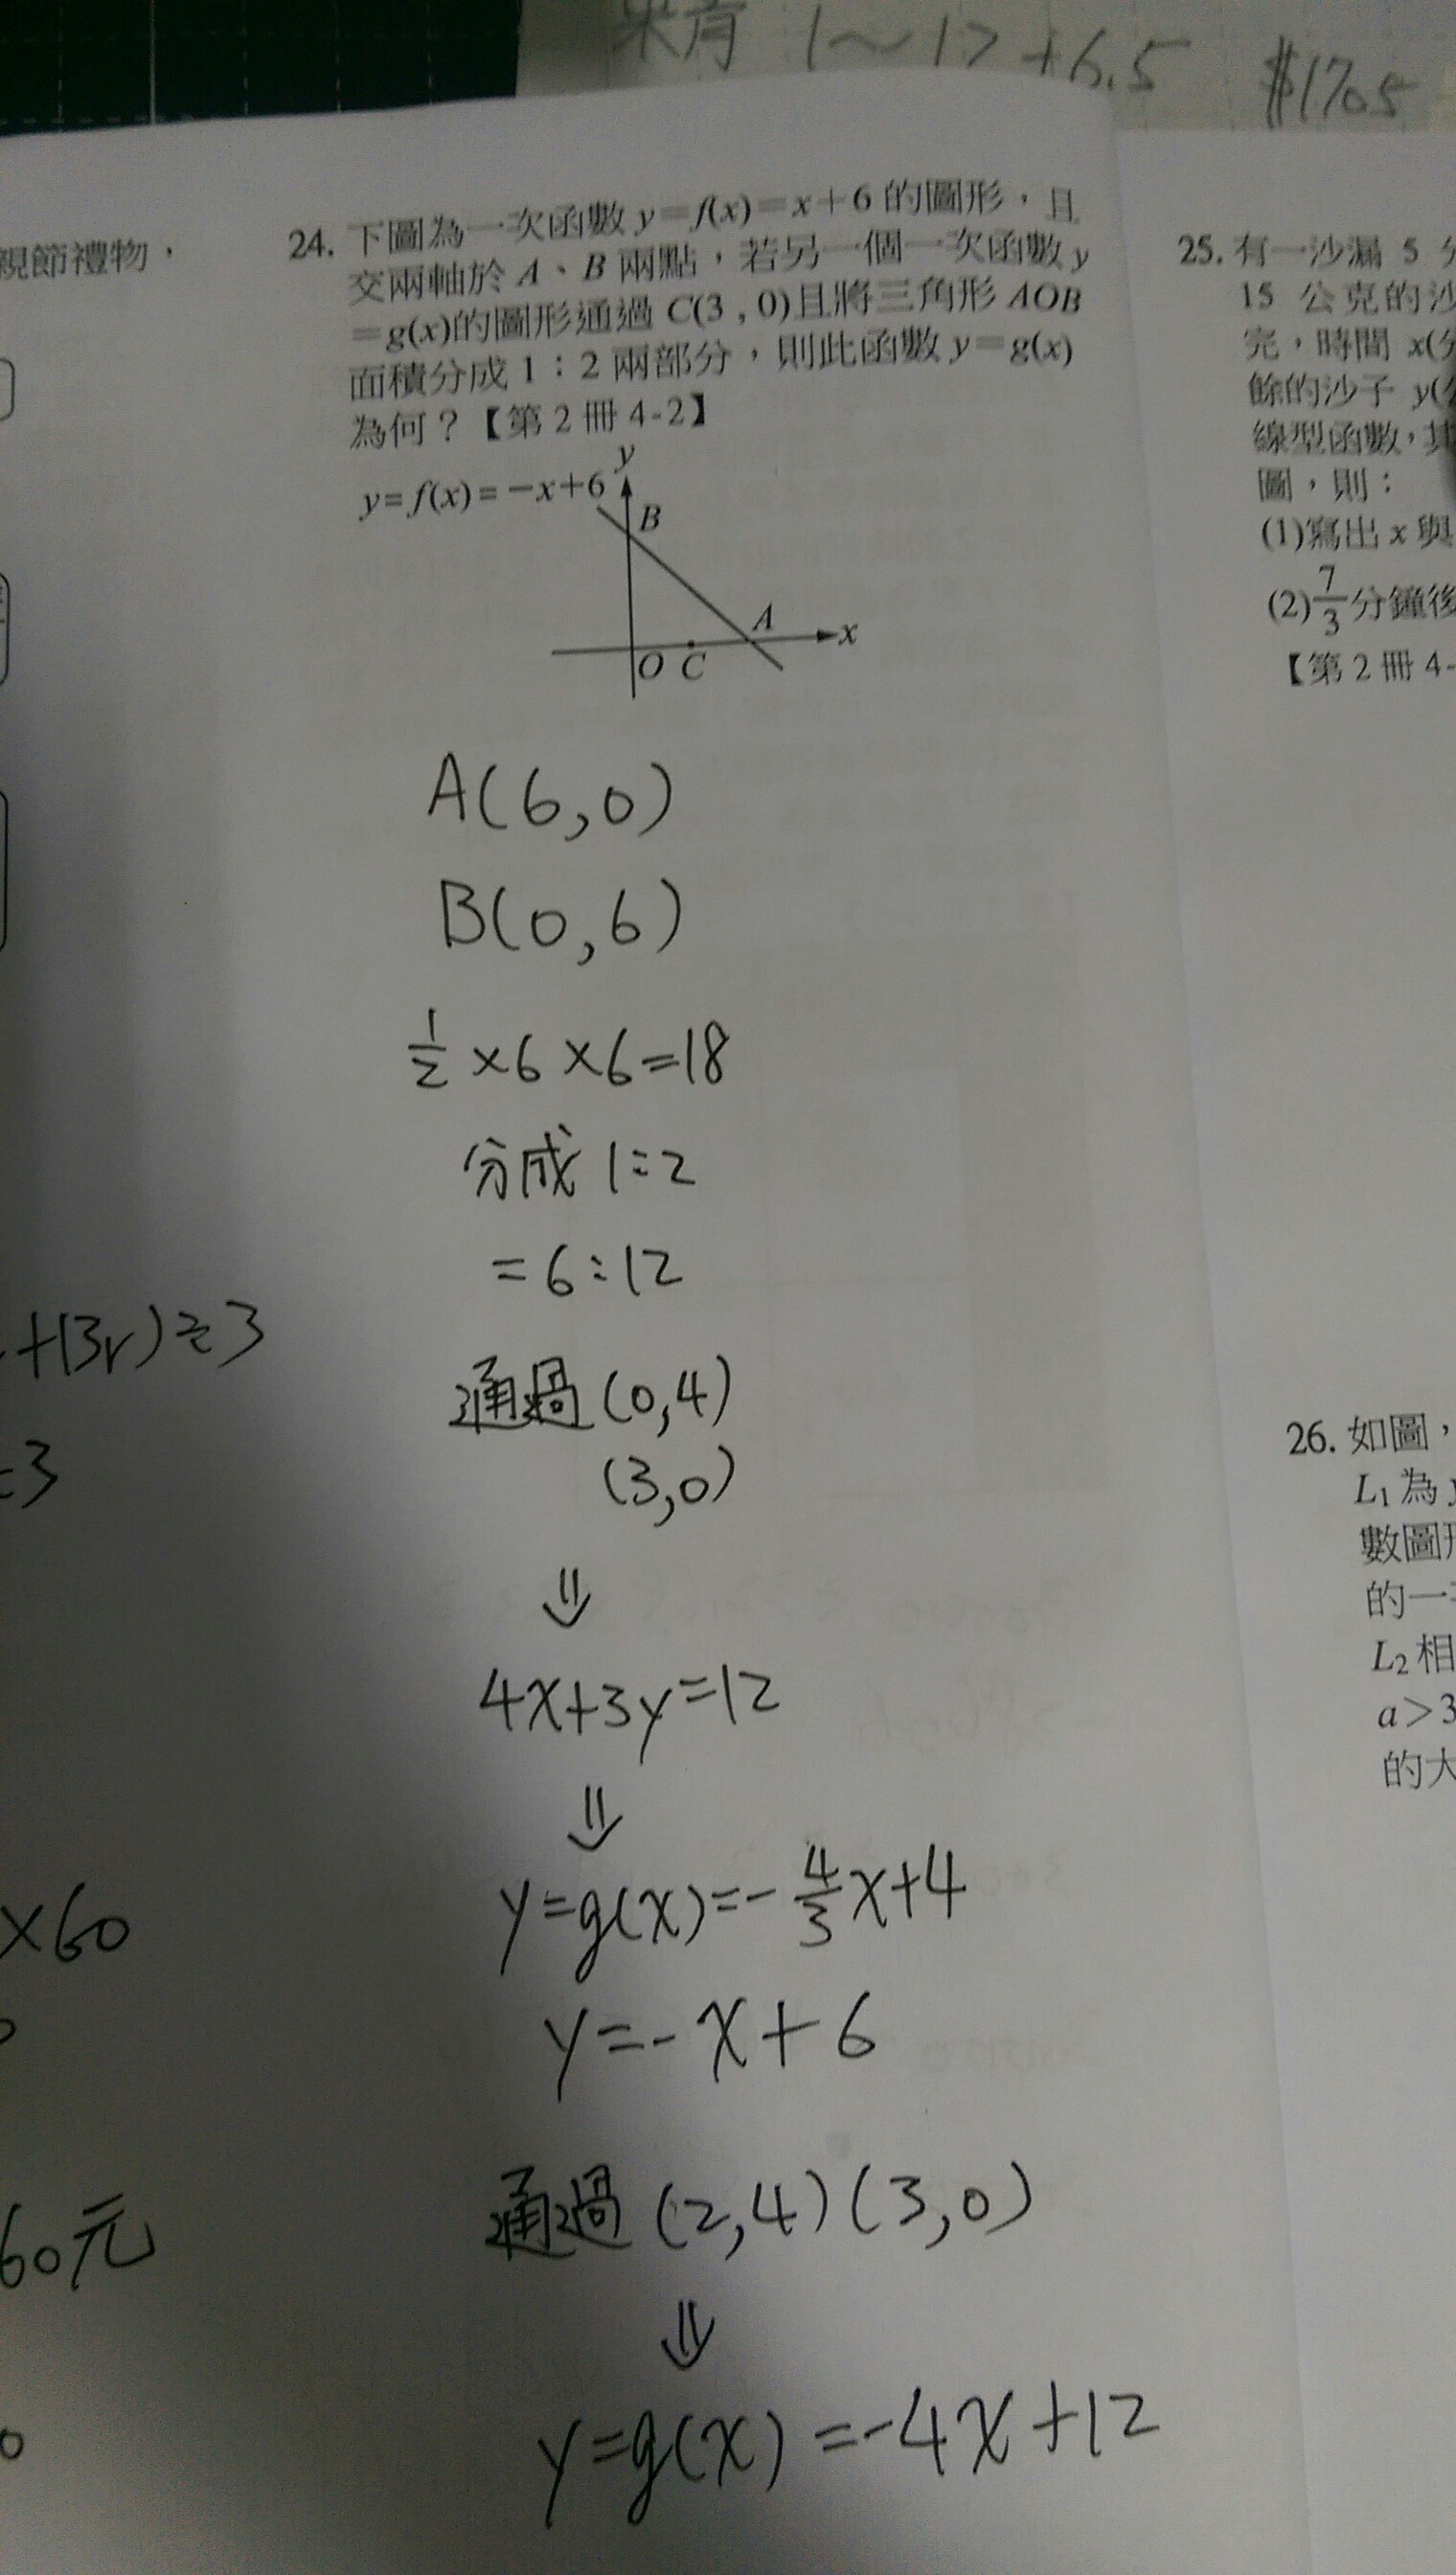 1～17 +6.5 $1705
親節禮物，
24. 下圖為一次函數 y=f(x)=x+6 的圖形，且
交兩軸於 A、B 兩點，若另一個一次函數 y
=g(x)的圖形通過 C(3 , 0)且將三角形 AOB
面積分成 1：2 兩部分，則此函數 y=g(x)
為何？【第 2 冊 4-2】
y=f(x)=－x+6
y
B
A
x
O C
A(6,0)
B(0,6)
1/2 ×6×6=18
分成 1:2
=6:12
通過 (0,4)
(3,0)
⇓
4x+3y=12
⇓
y=g(x)=-4/3x+4
y=-x+6
通過 (2,4)(3,0)
⇓
y=g(x)=-4x+12
=3
×60
60元
0
25. 有一沙漏 5
15 公克的沙
完，時間 x(
餘的沙子 y(
線型函數，其
圖，則：
(1)寫出 x 與
(2)7/3分鐘後
【第 2 冊 4-
26. 如圖，
L1 為
數圖形
的一
L2 相
a>3
的大